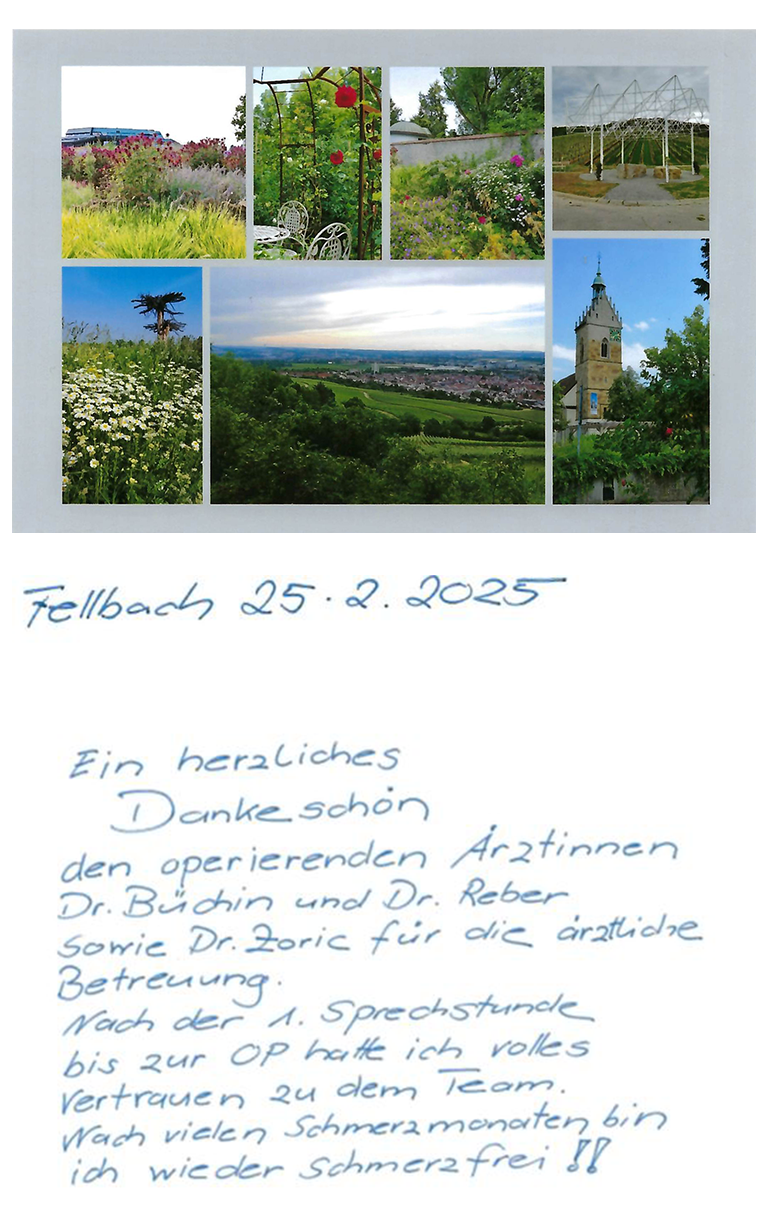 Fellbach 25.2.2025
Ein herzliches
Dankeschön
den operierenden Ärztinnen
Dr. Büchin und Dr. Reber
sowie Dr. Zoric für die ärztliche
Betreuung.
Nach der 1. Sprechstunde
bis zur OP hatte ich volles
Vertrauen zu dem Team.
Nach vielen Schmerzmonaten bin
ich wieder schmerzfrei !!